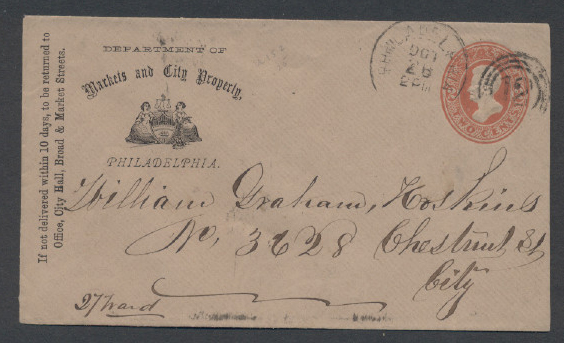 If not delivered within 10 days, to be returned to
Office, City Hall, Broad & Market Streets.
DEPARTMENT OF
Markets and City Property,
PHILADELPHIA.
PHILADEL
OCT
TWO CENTS
William Graham, Hoskins
No, 3628 Chestnut St
City
27 ward